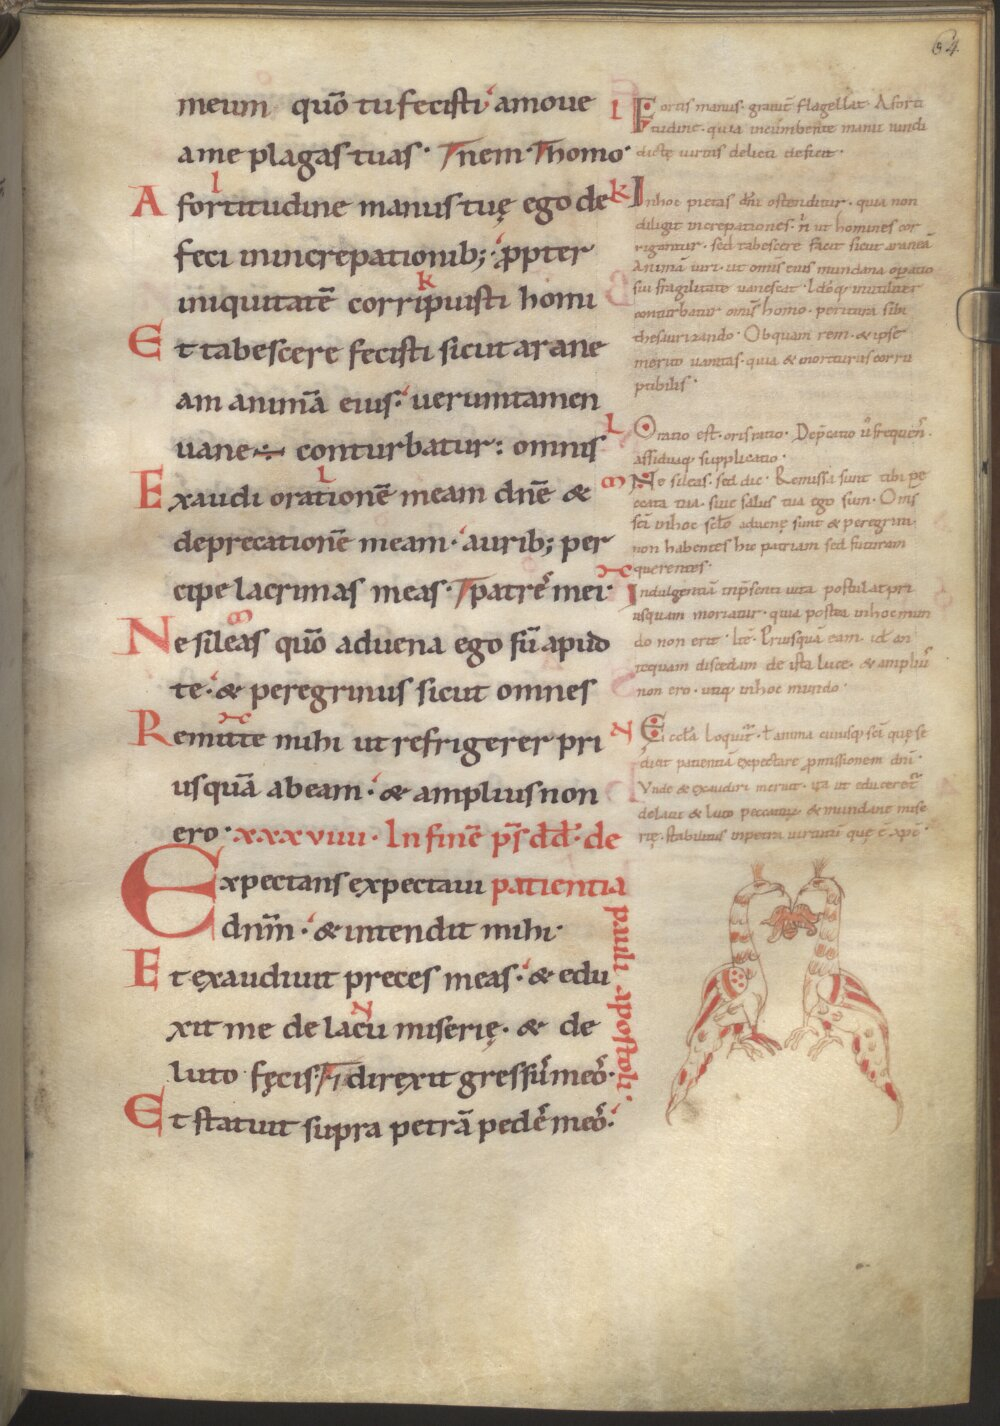 64
meum quō tu fecisti amoue
a me plagas tuas· nem· homo·
A fortitudine manus tuę ego de
feci in increpationib; ppter
iniquitatē corripuisti homi
Et tabescere fecisti sicut arane
am animā eius· uerumtamen
uane÷ conturbatur: omnis
Exaudi orationē meam dnē &
deprecationē meam· aurib; per
cipe lacrimas meas· patrē mei·
Ne sileas quō aduena ego sū apud
te· & peregrinus sicut omnes
Remitte mihi ut refrigerer pri
usquā abeam· & amplius non
ero· xxxviiii· In finē ps dd· de
Expectans expectaui patientia
dnm· & intendit mihi·
Et exaudiuit preces meas· & edu
xit me de lacu miserię· & de
luto fęcis· direxit gressū meo·
Et statuit supra petrā pedē meo·
pauli apostoli·
l Fortis manus· grauit flagellat· A forti
tudine· quia incumbente manu uindi
ctę uirtus delicti deficit·
k In hoc pietas dni ostenditur· quia non
diligit increpationes· n ut homines cor
rigantur· sed tabescere facit sicut araneā
Animā uiri· ut omīs eius mundana opatio
sui fragilitate uanescat· Idoq inutiliter
conturbatur omīs homo· peritura sibi
thesaurizando· Ob quam rem· & ipse
merito uanitas· quia & moriturus corru
ptibilis·
L Oratio est· oris ratio· Depcatio u frequen·
assiduaq supplicatio·
m Ne sileas· sed dic· Remissa sunt tibi pec
cata tua· siue salus tua ego sum· Oms
sci in hoc sclo aduenę sunt & peregrini
non habentes hic patriam sed futuram
querentes·
Indulgentiā in psenti uita postulat pri
usquam moriatur· quia postea in hoc mun
do non erit· Priusquā eam· id an
tequam discedam de ista luce· & ampliu
non ero· utiq in hoc mundo·
N Ecclā loquit· l anima cuiusq sci quę se
dicit patientiā expectare pmissionem dni·
Vnde & exaudiri meruit· ita ut educeret
de lacu & luto peccatorū & mundane mise
rię· stabilitus in petra uirtutū quę ē xpc·